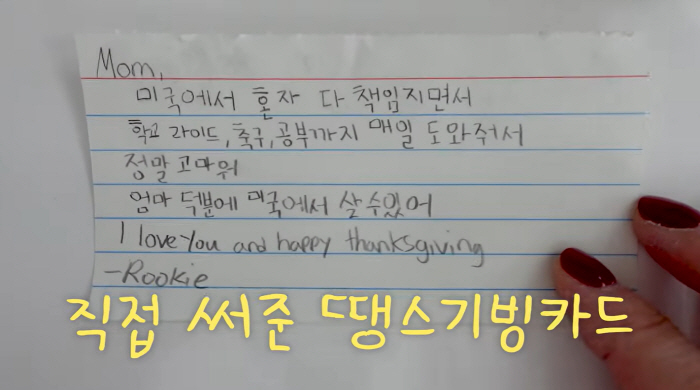 Mom,
미국에서 혼자 다 책임지면서
학교 라이드, 축구, 공부까지 매일 도와줘서
정말 고마워
엄마 덕분에 미국에서 살 수 있어
I love you and happy thanksgiving
-Rookie
직접 써준 땡스기빙카드